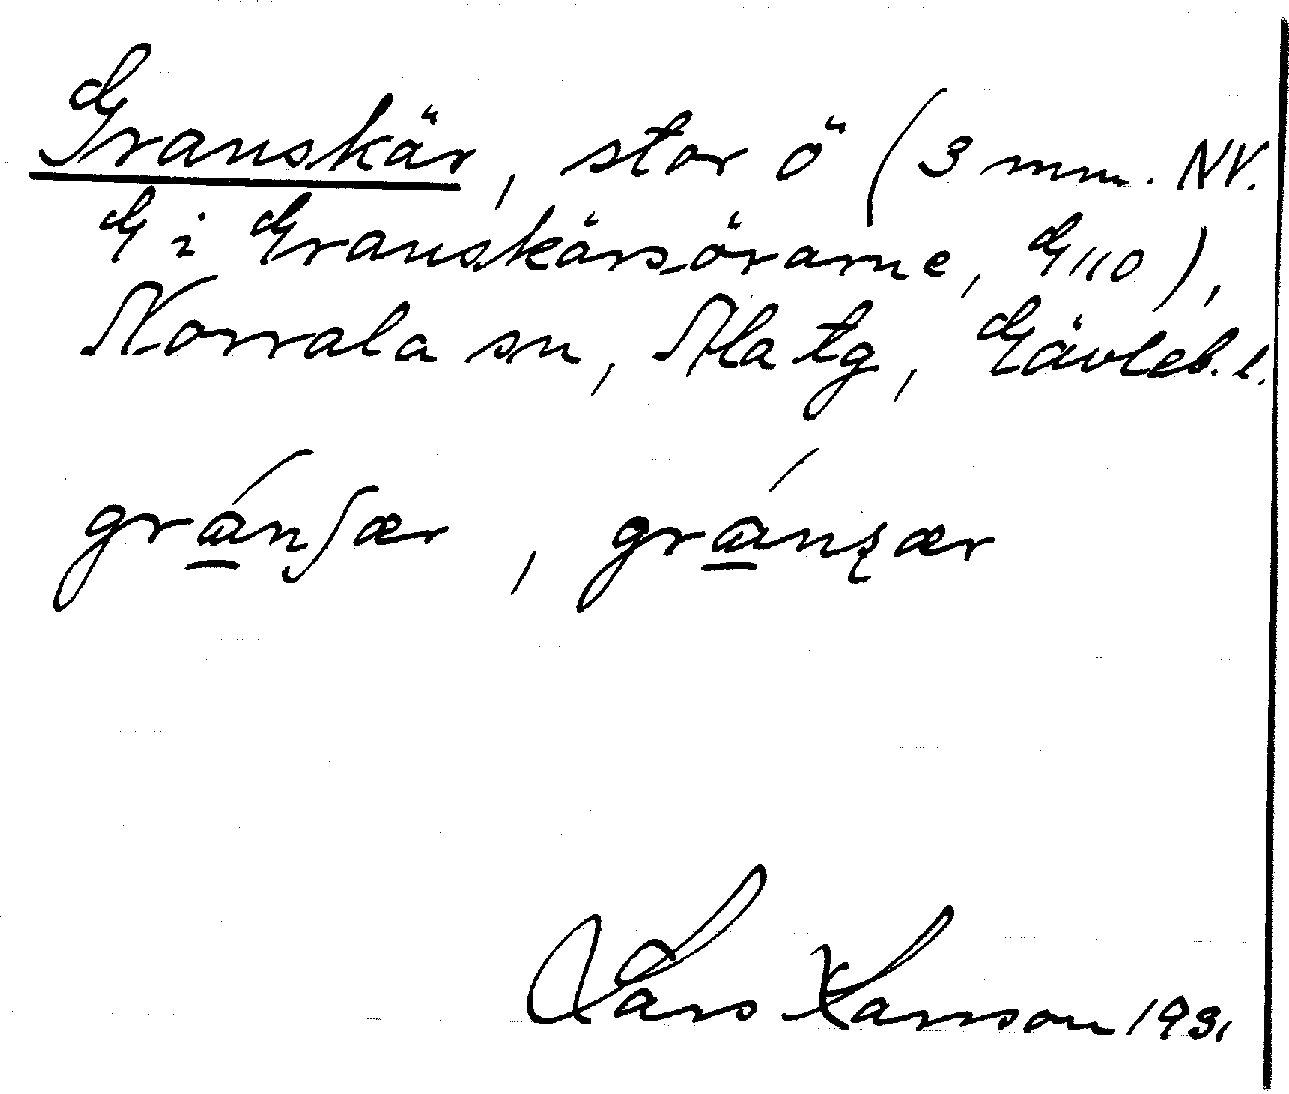 Granskär, stor ö (3 mm. NV.
G i Granskärsörarne, G110),
Norrala sn, Ala tg, Gävleb. l.
gránʃær, gránȿær
Lars Larsson 1931